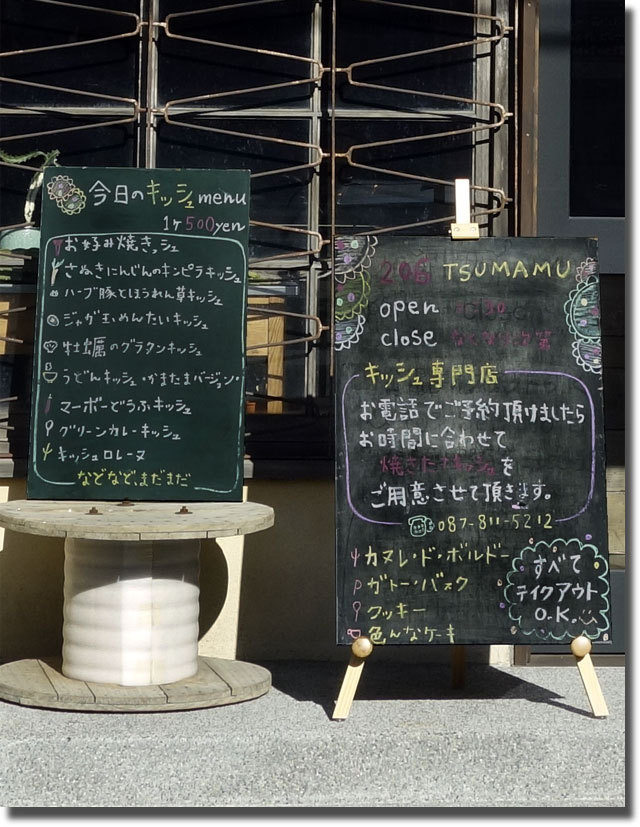 今日のキッシュmenu
1ヶ500yen
お好み焼きッシュ
さぬきにんじんのキンピラキッシュ
ハーブ豚とほうれん草キッシュ
ジャガ玉めんたいキッシュ
牡蠣のグラタンキッシュ
うどんキッシュ・かまたまバージョン・
マーボーどうふキッシュ
グリーンカレーキッシュ
キッシュロレーヌ
などなど、まだまだ
206 TSUMAMU
open
close なくなり次第
キッシュ専門店
お電話でご予約頂けましたら
お時間に合わせて
焼きたてキッシュを
ご用意させて頂きます。
087-811-5212
カヌレ・ド・ボルドー
ガトー・バスク
クッキー
色んなケーキ
すべて
テイクアウト
O.K.